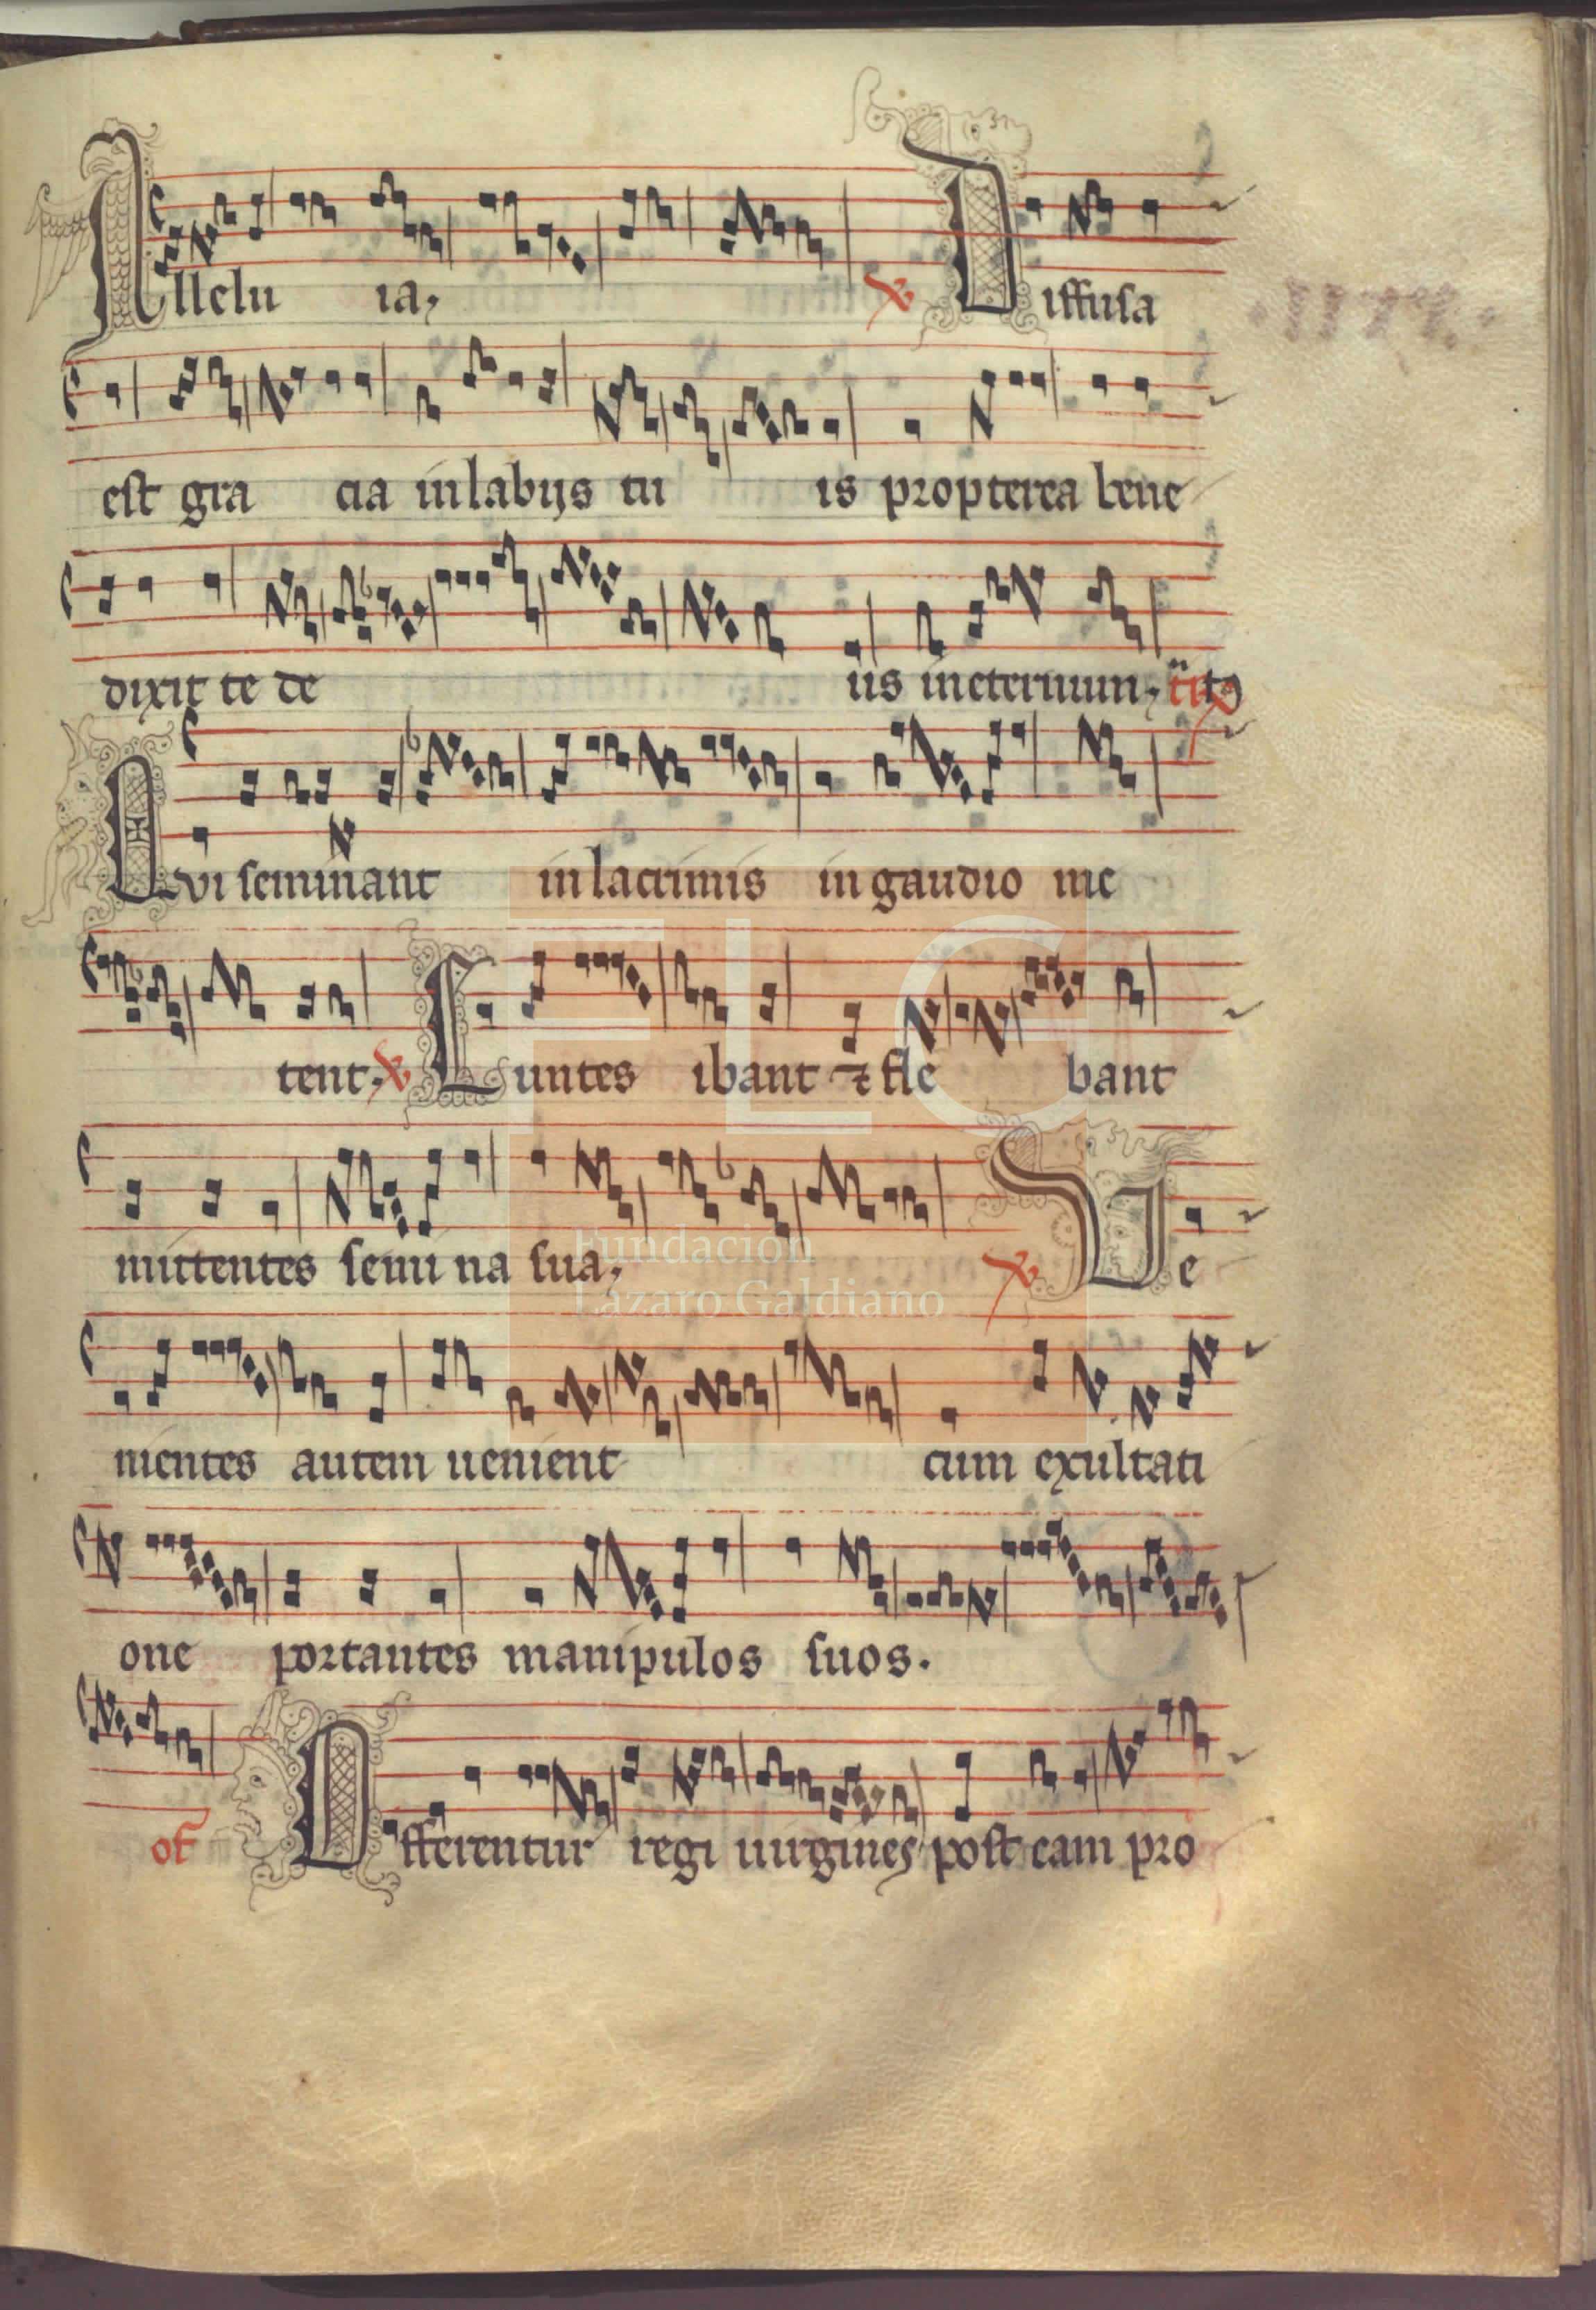 Allelu ia, ℣ Diffusa
est gra cia in labijs tu is propterea bene
dixit te de us in eternum,
Qvi seminant in lacrimis in gaudio me
tent. ℣ Euntes ibant ⁊ fle bant
mittentes semi na sua, ℣ Ve
nientes autem uenient cum exultati
one portantes manipulos suos.
of Offerentur regi uirgines post eam pro
FLG
Fundación
Lázaro Galdiano